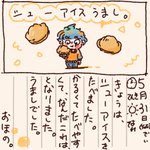 シューアイスうまし。
5月31日
きょうは、
シューアイスを
たべました。
かるくてたべやす
くて、なんだこれは
となりました。
うましでした。
おほの。